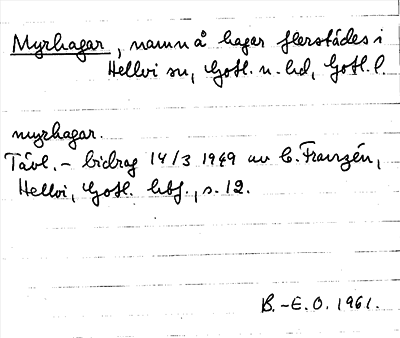 Myrhagar, namn å hagar flerstädes i
Hellvi sn, Gotl. n. hd, Gotl. l.
myrhagar.
Tävl.-bidrag 14/3 1949 av C. Franzén,
Hellvi, Gotl. hbf., s. 12.
B.-E. O. 1961.